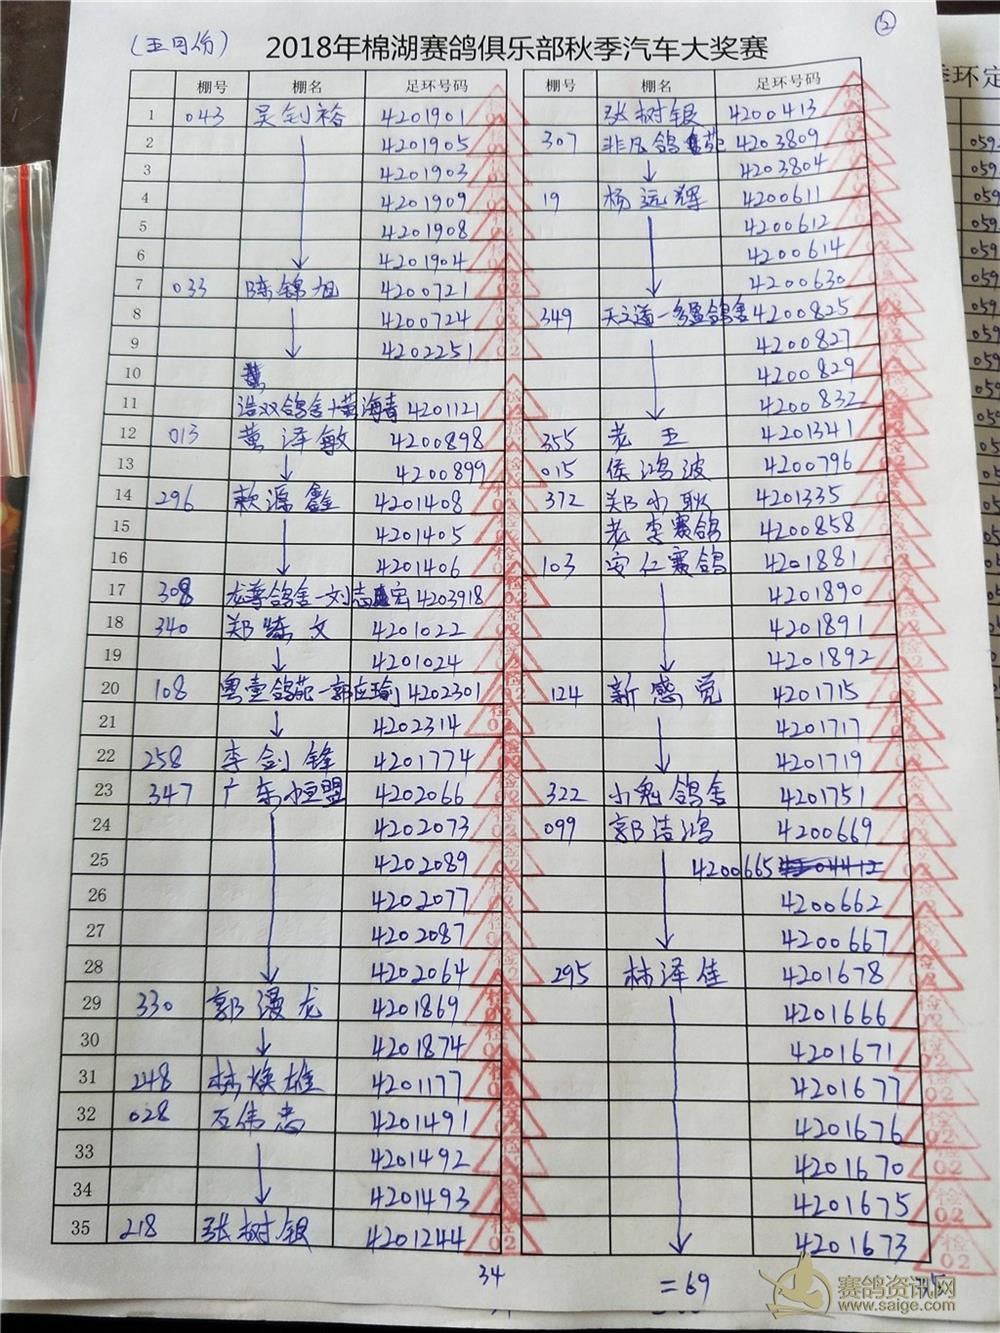 (五月份) 2018年棉湖赛鸽俱乐部秋季汽车大奖赛 ②
棚号 棚名 足环号码 棚号 棚名 足环号码
1 043 吴钊裕 4201901 张树银 4200413
2 4201905 307 非凡鸽苑 4203809
3 4201903 4203804
4 4201909 19 杨远辉 4200611
5 4201908 4200612
6 4201904 4200614
7 033 陈锦旭 4200721 4200630
8 4200724 349 天之道一多盈鸽舍 4200825
9 4202251 4200827
10 4200829
11 浩双鸽舍+黄海青 4201121 4200832
12 013 黄泽敏 4200898 355 老王 4201341
13 4200899 015 侯鸿波 4200796
14 296 源鑫 4201408 372 郑小耿 4201335
15 4201405 老李赛鸽 4200858
16 4201406 103 安仁赛鸽 4201881
17 308 龙尊鸽舍-刘志宏 4203918 4201890
18 340 郑炼文 4201022 4201891
19 4201024 4201892
20 108 粤壹鸽苑-郭应瑜 4202301 124 新感觉 4201715
21 4202314 4201717
22 258 李剑锋 4201774 4201719
23 347 广东恒盟 4202066 322 小鬼鸽舍 4201751
24 4202073 099 郭洁鸿 4200669
25 4202089 4200665
26 4202077 4200662
27 4202087 4200667
28 4202064 295 林泽佳 4201678
29 330 郭漫龙 4201869 4201666
30 4201874 4201671
31 248 林焕雄 4201177 4201677
32 028 石伟忠 4201491 4201676
33 4201492 4201670
34 4201493 4201675
35 218 张树银 4201244 4201673
34 =69
赛鸽资讯网
www.saige.com